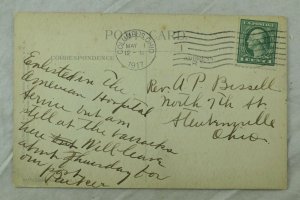 POST CARD
CORRESPONDENCE
ADDRESS
COLUMBUS, OHIO
MAY
1917
Enlisted in the
American Hospital
Service but am
still at the barracks
here but Will leave
about Thursday for
our post
Rev. A P. Bissell
North 7th St
Steubenville
Ohio